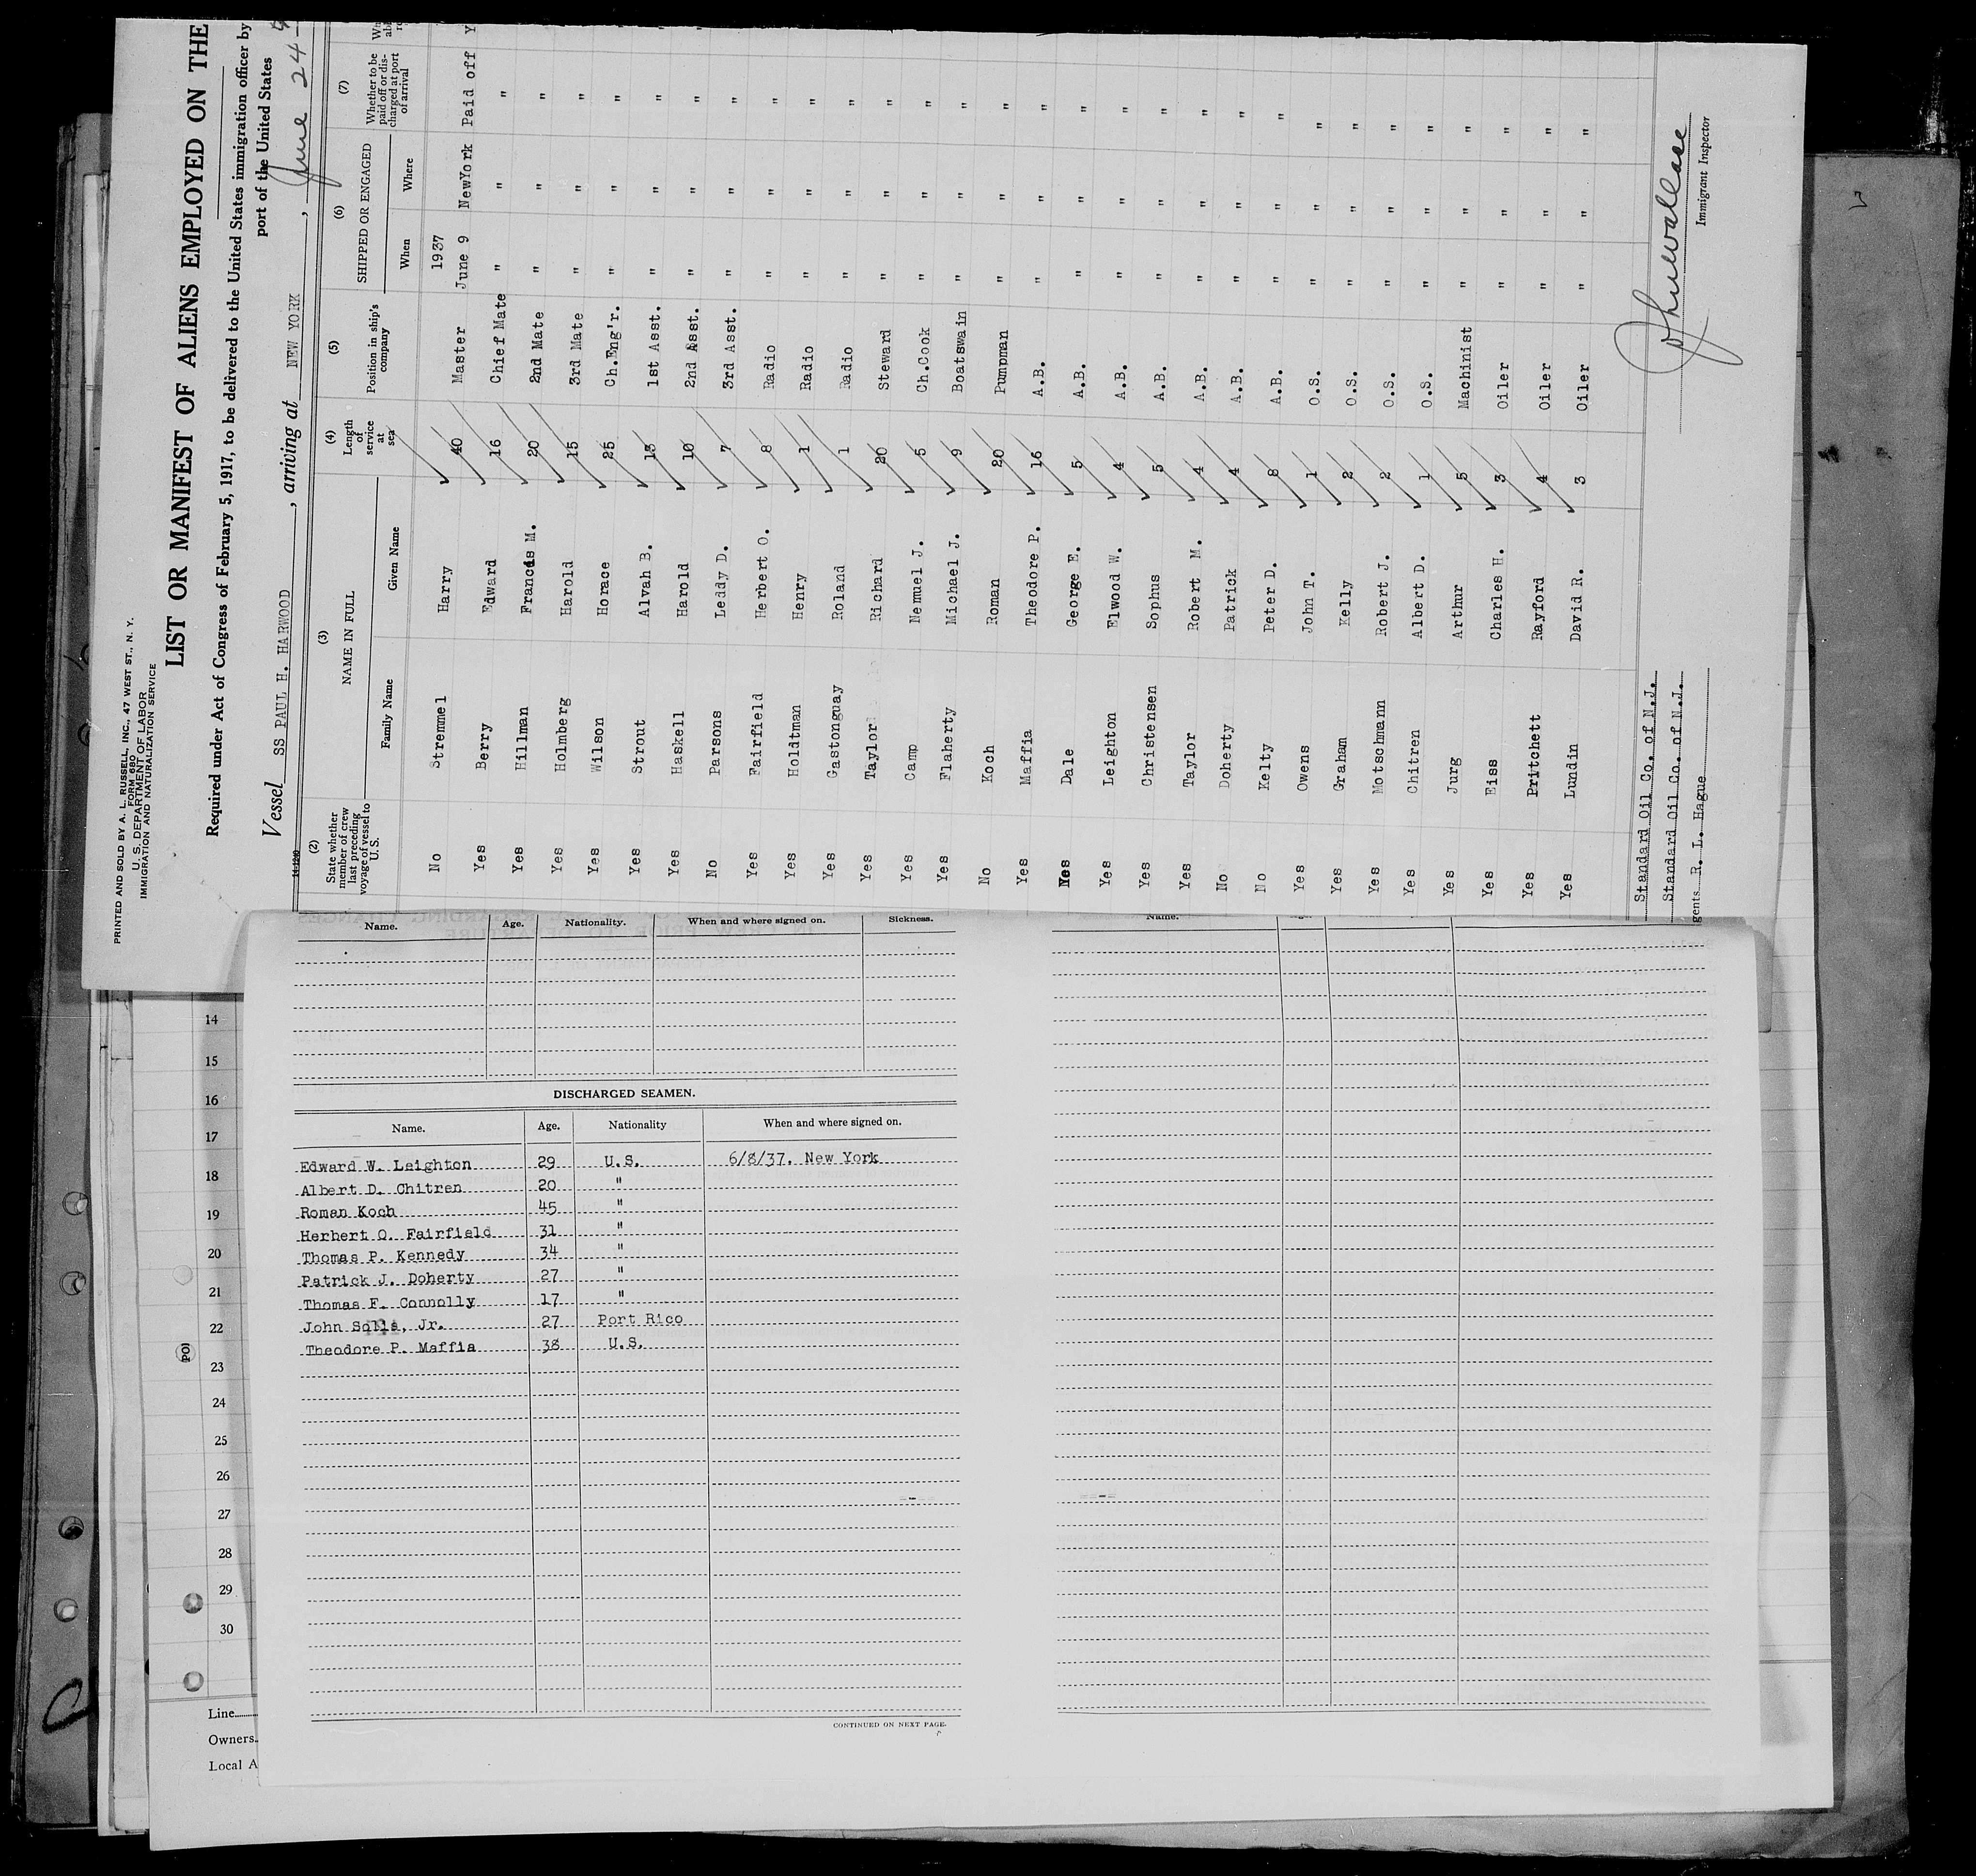 PRINTED AND SOLD BY A. L. RUSSELL, INC., 47 WEST ST., N. Y.
FORM 680
U. S. DEPARTMENT OF LABOR
IMMIGRATION AND NATURALIZATION SERVICE
LIST OR MANIFEST OF ALIENS EMPLOYED ON THE
Required under Act of Congress of February 5, 1917, to be delivered to the United States immigration officer by
port of the United States
Vessel SS PAUL H. HARWOOD, arriving at NEW YORK, June 24
(2) (3) (4) (5) (6) (7)
State whether member of crew last preceding voyage of vessel to U.S. NAME IN FULL Family Name Given Name Length of service at sea Position in ship's company SHIPPED OR ENGAGED When Where Whether to be paid off or discharged at port of arrival
1937
No Stremmel Harry 40 Master June 9 NewYork Paid off Y
Yes Berry Edward 16 Chief Mate " " "
Yes Hillman Francis M. 20 2nd Mate " " "
Yes Holmberg Harold 15 3rd Mate " " "
Yes Wilson Horace 25 Ch.Eng'r. " " "
Yes Strout Alvah B. 13 1st Asst. " " "
Yes Haskell Harold 10 2nd Asst. " " "
No Parsons Leddy D. 7 3rd Asst. " " "
Yes Fairfield Herbert O. 8 Radio " " "
Yes Holdtman Henry 1 Radio " " "
Yes Gastonguay Roland 1 Radio " " "
Yes Taylor Richard 20 Steward " " "
Yes Camp Nemuel J. 5 Ch.Cook " " "
Yes Flaherty Michael J. 9 Boatswain " " "
No Koch Roman 20 Pumpman " " "
Yes Maffia Theodore P. 16 A.B. " " "
Yes Dale George E. 5 A.B. " " "
Yes Leighton Elwood W. 4 A.B. " " "
Yes Christensen Sophus 5 A.B. " " "
Yes Taylor Robert M. 4 A.B. " " "
No Doherty Patrick 4 A.B. " " "
No Kelty Peter D. 8 A.B. " " "
Yes Owens John T. 1 O.S. " " "
Yes Graham Kelly 2 O.S. " " "
Yes Motschmann Robert J. 2 O.S. " " "
Yes Chitren Albert D. 1 O.S. " " "
Yes Jurg Arthur 5 Machinist " " "
Yes Eiss Charles H. 3 Oiler " " "
Yes Pritchett Rayford 4 Oiler " " "
Yes Lundin David R. 3 Oiler " " "
Standard Oil Co. of N.J.
Standard Oil Co. of N.J.
gents R. L. Hague
Immigrant Inspector
Name. Age. Nationality. When and where signed on. Sickness.
Name.
DISCHARGED SEAMEN.
Name. Age. Nationality When and where signed on.
Edward W. Leighton 29 U.S. 6/8/37. New York
Albert D. Chitren 20 "
Roman Koch 45 "
Herbert O. Fairfield 31 "
Thomas P. Kennedy 34 "
Patrick J. Doherty 27 "
Thomas F. Connolly 17 "
John Solla, Jr. 27 Port Rico
Theodore P. Maffia 38 U.S.
CONTINUED ON NEXT PAGE.
14
15
16
17
18
19
20
21
22
PO)
23
24
25
26
27
28
29
30
Line
Owners
Local A